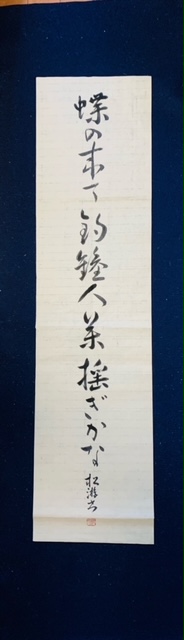 蝶の来て釣鐘人参揺ぎかな